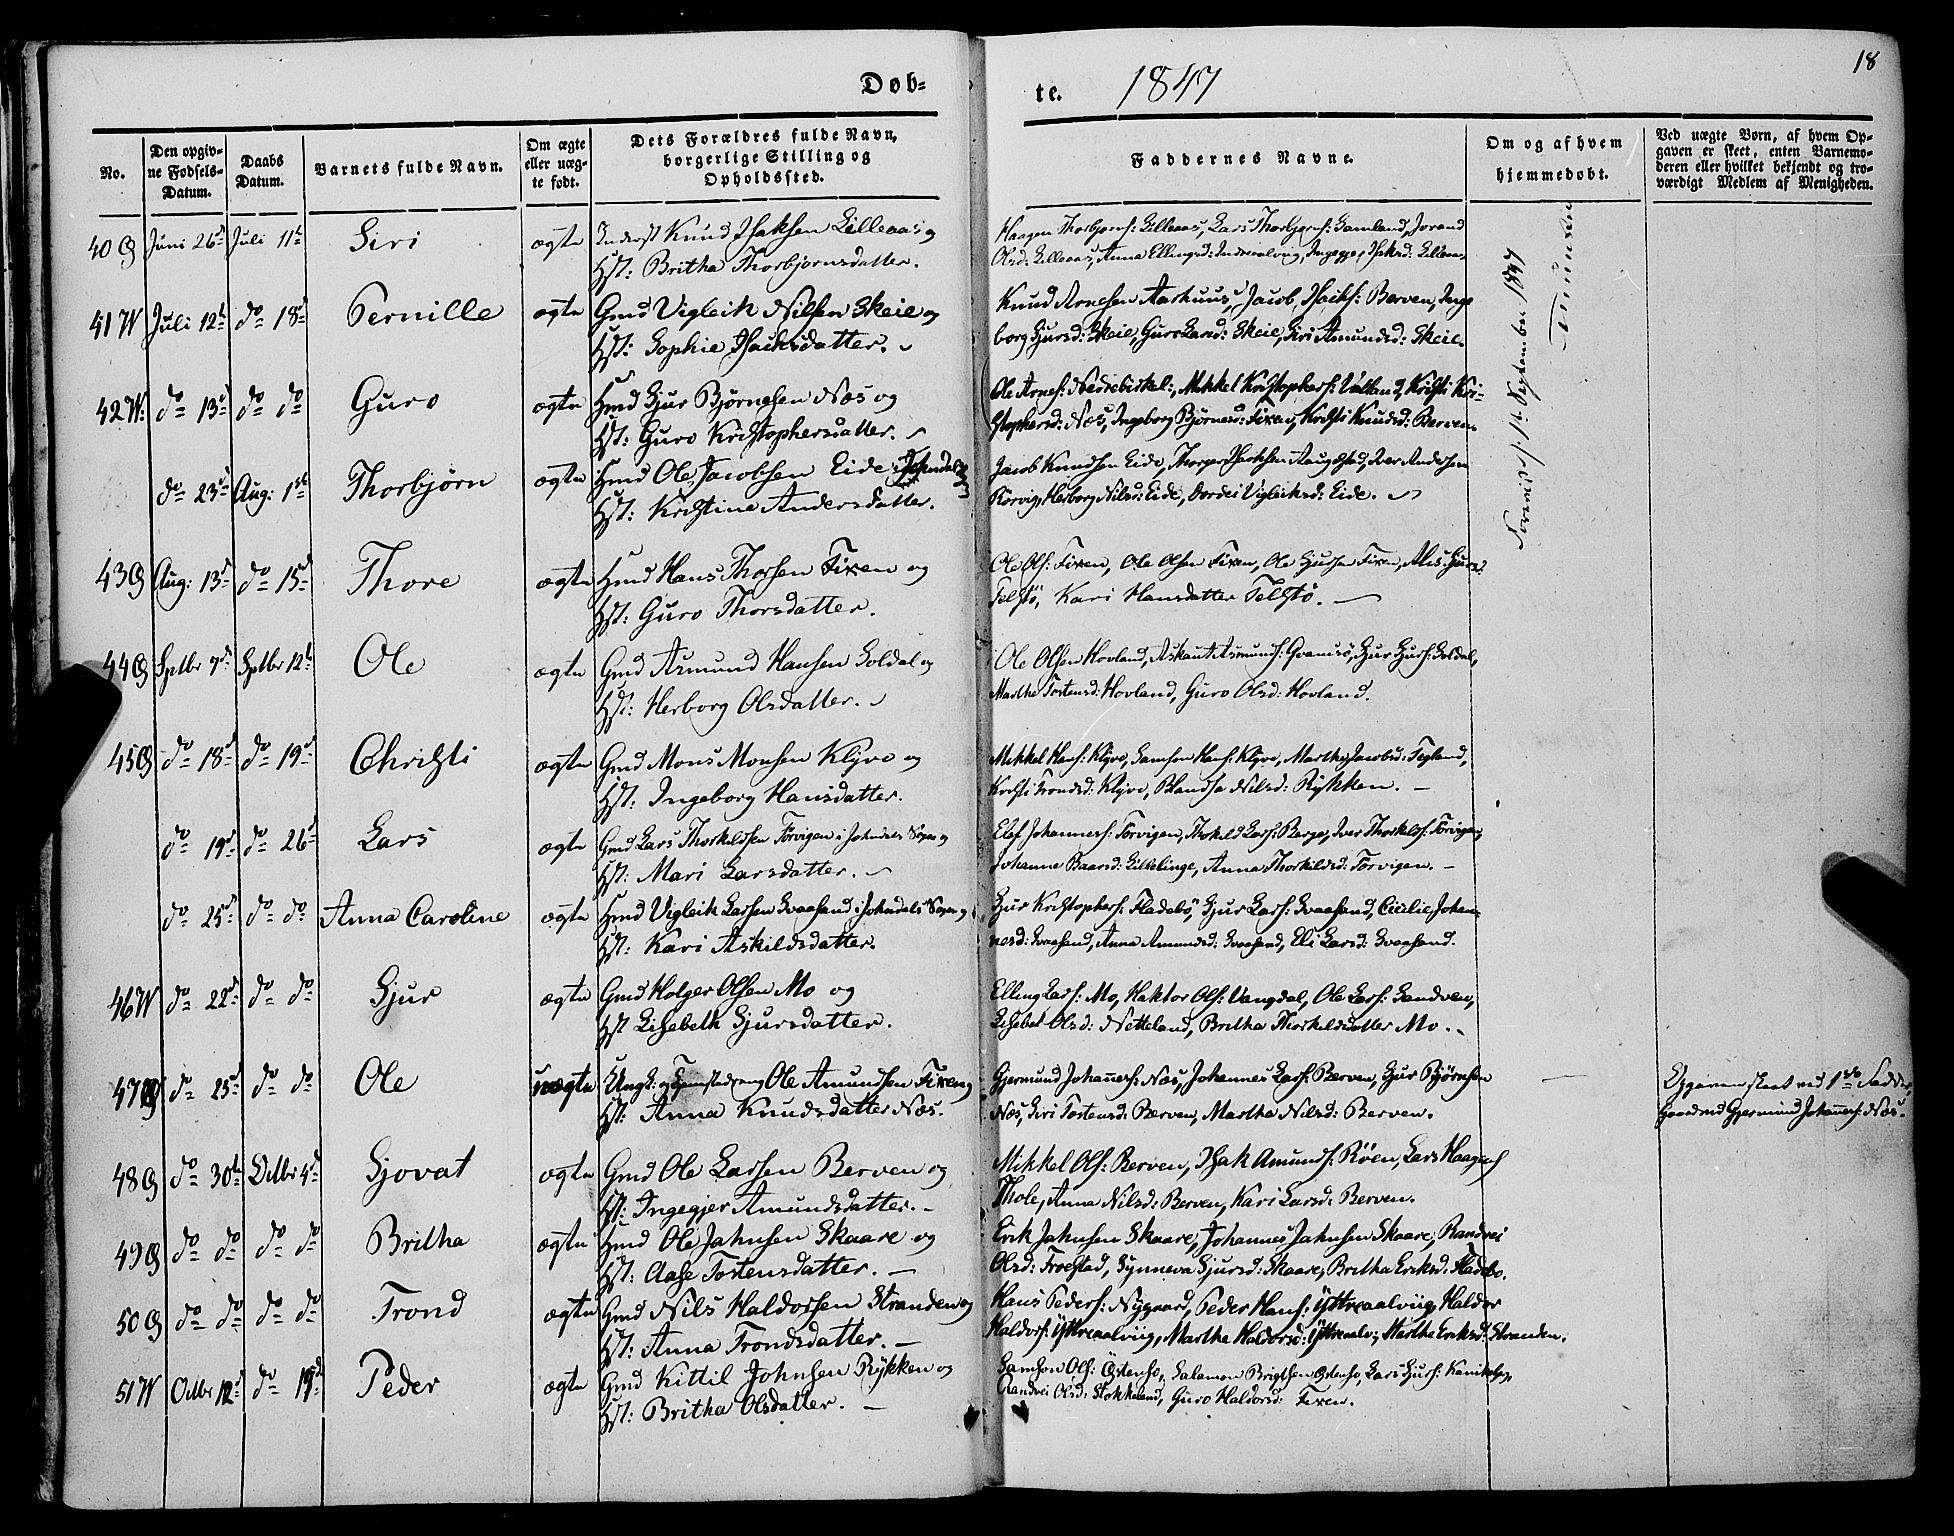 18
Døb-
te. 1847
No.
Den opgiv-
ne Fødsels-
Datum.
Daabs
Datum.
Barnets fulde Navn.
Om ægte
eller uæg-
te født.
Dets Forældres fulde Navn,
borgerlige Stilling og
Opholdssted.
Faddernes Navne.
Om og af hvem
hjemmedøbt.
Ved uægte Børn, af hvem Op-
gaven er skeet, enten Barnemo-
deren eller hvilket bekjendt og tro-
værdigt Medlem af Menigheden.
40 Juni 26d Juli 11te Siri ægte Inderst Knud Isaksen Lilleaas og
Hst: Britha Thorbjørnsdatter.
Haagen Thorbjørns: Lilleaas, Lars Thorbjørns: Samland, Jorand
Olsd: Lilleaas, Anna Ellingsd:
41 W Juli 12te do 18d Pernille ægte Gmd Vigleik Nilsen Skeie og
Hst: Sophie Isacksdatter.
Knud Arnesen Aarhuus, Jacob Isacks: Berven, Inge
borg Sjursd: Skeie, Guro Larsd: Skeie, Siri Amundsd: Skeie.
42 W: do 13d do do Guro ægte Hmd Sjur Bjørnesen Næs og
Hst: Guro Kristophersdatter.
Ole Arnes: Nedrebirkel:, Mikkel Kristophers: Valland, Kristi Kri-
stophersd: Næs, Ingeborg Bjørnesd: Fixen, Kristi Knudsd: Berven.
do 23d Aug: 1ste Thorbjørn ægte Hmd Ole Jacobsen Eide i Johndal og
Hst: Kristine Andersdatter.
Jacob Knudsen Eide, Thorger Isaksen Augestad, Iver Andersen
Rørvig, Herborg Nilsd: Eide, Dordei Vigleiksd: Eide.
43 Aug: 13d do 15d Thore ægte Hmd Hans Thorsen Fixen og
Hst: Guro Thorsdatter.
Ole Ols: Fixen, Ole Olsen Fixen, Ole Sjursen Fixen, Alis Sjursd:
Telstø, Kari Hansdatter Telstø.
44 Sptbr 7d Sptbr 12te Ole ægte Gmd Asmund Hansen Soldal og
Hst: Herborg Olsdatter.
Ole Olsen Hovland, Askaut Asmunds: Gvamsø, Sjur Sjurs: Soldal,
Martha Tostensd: Hovland, Guro Olsd: Hovland.
45 do 18d do 19d Christi ægte Gmd Mons Monsen Klyve og
Hst: Ingeborg Hansdatter.
Mikkel Hans: Klyve, Samson Hans: Klyve, Martha Jacobsd: Tegland,
Kristi Trondsd: Klyve, Blandsa Nilsd: Rykken.
do 19d do 26d Lars ægte Gmd Lars Thorkildsen Torvigen i Johndals Sogn og
Hst: Mari Larsdatter.
Elef Johannes: Torvigen, Thorkild Lars: Berge, Iver Thorkilds: Torvigen,
Johanne Baarsd: Lillelinge, Anna Thorkildsd: Torvigen.
do 25d do do Anna Caroline ægte Hmd Vigleik Larsen Svaasand i Johndals Sogn og
Hst: Kari Askildsdatter.
Sjur Kristophers: Fladebø, Sjur Lars: Svaasand, Cicilie Johan-
nesd: Svaasand, Anna Amundsd: Svaasand, Eli Larsd: Svaasand.
46 W do 22d do do Sjur ægte Gmd Holger Olsen Mo og
Hst Lisebeth Sjursdatter.
Elling Lars: Mo, Haktor Ols: Vangdal, Ole Lars: Sandven,
Lisebet Olsd: Netteland, Britha Thorkildsdatter Mo.
47 do 25d do do Ole uægte Ungk: og Ole Amundsen Fixen og
Hst: Anna Knudsdatter Næs.
Gjermund Johannes: Næs, Johannes Lars: Berven, Sjur Bjørnesen
Næs, Siri Tostensd: Berven, Martha Nilsd: Berven.
Opgaven skeet ved 1ste Fadder,
Gaardmd Gjermund Johannes: Næs.
48 do 30te Octbr 4d Sjovat ægte Gmd Ole Larsen Berven og
Hst: Ingegjer Amundsdatter.
Mikkel Ols: Berven, Isak Amunds: Røen, Lars Haagens:
Thole, Anna Nilsd: Berven, Kari Larsd: Berven.
49 do do do do Britha ægte Hmd Ole Jahnsen Skaare og
Hst: Aase Tostensdatter.
Erik Jahnsen Skaare, Johannes Jahnsen Skaare, Randvei
Olsd: Froestad, Synneva Sjursd: Skaare, Britha Eriksd: Fladebø.
50 do do do do Trond ægte Gmd Nils Haldorsen Stranden og
Hst: Anna Trondsdatter.
Hans Peders: Nygaard, Peder Hans: Yttreaalviig, Haldor
Haldors: Yttreaalviig, Martha Haldorsd: Yttreaalv:, Martha Eriksd: Stranden.
51 W Octbr 12d do 19d Peder ægte Gmd Kittil Johnsen Rykken og
Hst: Britha Olsdatter.
Samson Ols: Østensø, Salamon Brigtsen Østensø, Lars Sjurs:
Randvei Olsd: Stokkeland, Guro Haldorsd: Fixen.
September 1847